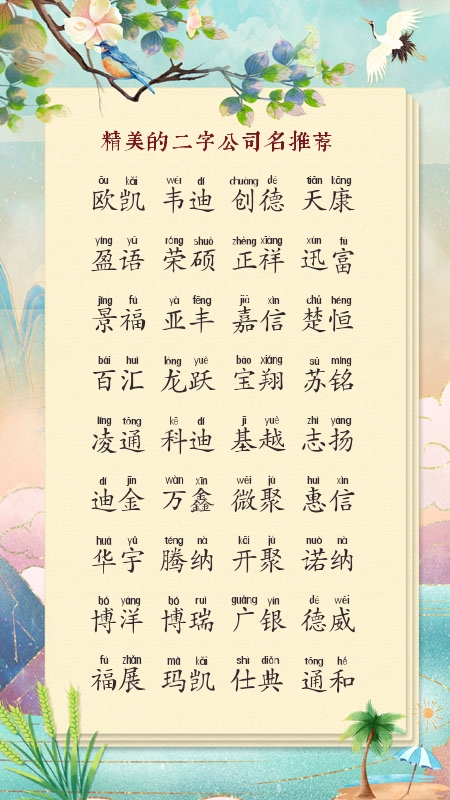 精美的二字公司名推荐
ōu kǎi wéi dí chuàng dé tiān kāng
欧凯 韦迪 创德 天康
yíng yǔ róng shuò zhèng xiáng xùn fù
盈语 荣硕 正祥 迅富
jǐng fú yà fēng jiā xìn chǔ héng
景福 亚丰 嘉信 楚恒
bǎi huì lóng yuè bǎo xiáng sū míng
百汇 龙跃 宝翔 苏铭
líng tōng kē dí jī yuè zhì yáng
凌通 科迪 基越 志扬
dí jīn wàn xīn wēi jù huì xìn
迪金 万鑫 微聚 惠信
huá yǔ téng nà kāi jù nuò nà
华宇 腾纳 开聚 诺纳
bó yáng bó ruì guǎng yín dé wēi
博洋 博瑞 广银 德威
fú zhǎn mǎ kǎi shì diǎn tōng hé
福展 玛凯 仕典 通和